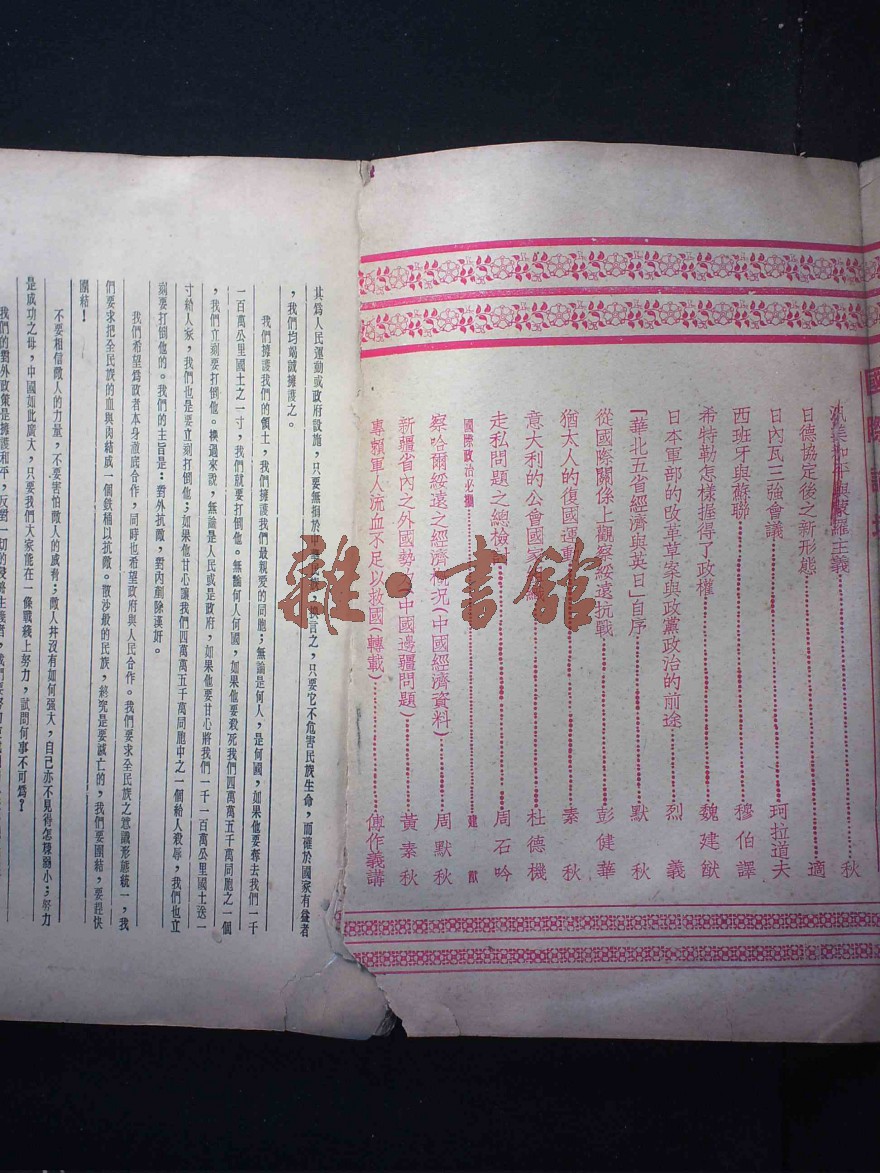 國際
汎美和平與蒙羅主義……秋
日德協定後之新形態……適
日內瓦三強會議……珂拉道夫
西班牙與蘇聯……穆伯譯
希特勒怎樣握得了政權……魏建猷
日本軍部的改革草案與政黨政治的前途……烈義
「華北五省經濟與英日」自序……默秋
從國際關係上觀察綏遠抗戰……彭健華
猶太人的復國運動……素秋
意大利的公會國家……杜德機
走私問題之總檢討……周石吟
國際政治必攜……建猷
察哈爾綏遠之經濟概況(中國經濟資料)……周默秋
新疆省內之外國勢力(中國邊疆問題)……黃素秋
專賴軍人流血不足以救國(轉載)……傅作義講
其爲人民運動或政府設施,只要無損於 言之,只要它不危害民族生命,而確於國家有益者
,我們均竭誠擁護之。
我們擁護我們的領土,我們擁護我們最親愛的同胞;無論是何人,是何國,如果他要奪去我們一千
一百萬公里國土之一寸,我們就要打倒他。無論何人何國,如果他要殺死我們四萬萬五千萬同胞之一個
,我們立刻要打倒他。換過來說,無論是人民或是政府,如果他要甘心將我們一千一百萬公里國土送一
寸給人家,我們也是要立刻打倒他;如果他甘心讓我們四萬萬五千萬同胞中之一個給人殺辱,我們也立
刻要打倒他的。我們的主旨是:對外抗敵,對內剷除漢奸。
我們希望爲政者本身澈底合作,同時也希望政府與人民合作。我們要求全民族之意識形態統一,我
們要求把全民族的血與肉結成一個鉄桶以抗敵。散沙般的民族,終究是要滅亡的,我們要團結,要趕快
團結!
不要相信敵人的力量,不要害怕敵人的威脅;敵人幷沒有如何强大,自己亦不見得怎樣弱小;努力
是成功之母,中國如此廣大,只要我們大家能在一條戰綫上努力,試問何事不可爲?
我們的對外政策是擁護和平,反對一切的侵略主義者,我們要努力
雜·書館